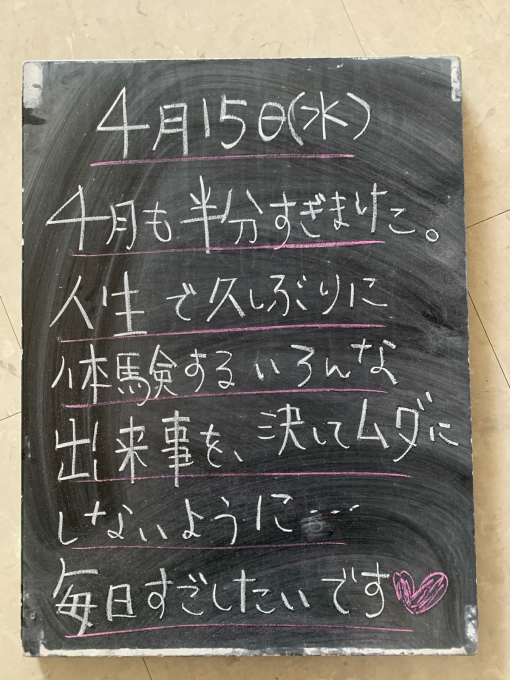 4月15日(水)
4月も半分すぎました。
人生で久しぶりに
体験するいろんな
出来事を、決してムダに
しないように…
毎日すごしたいです